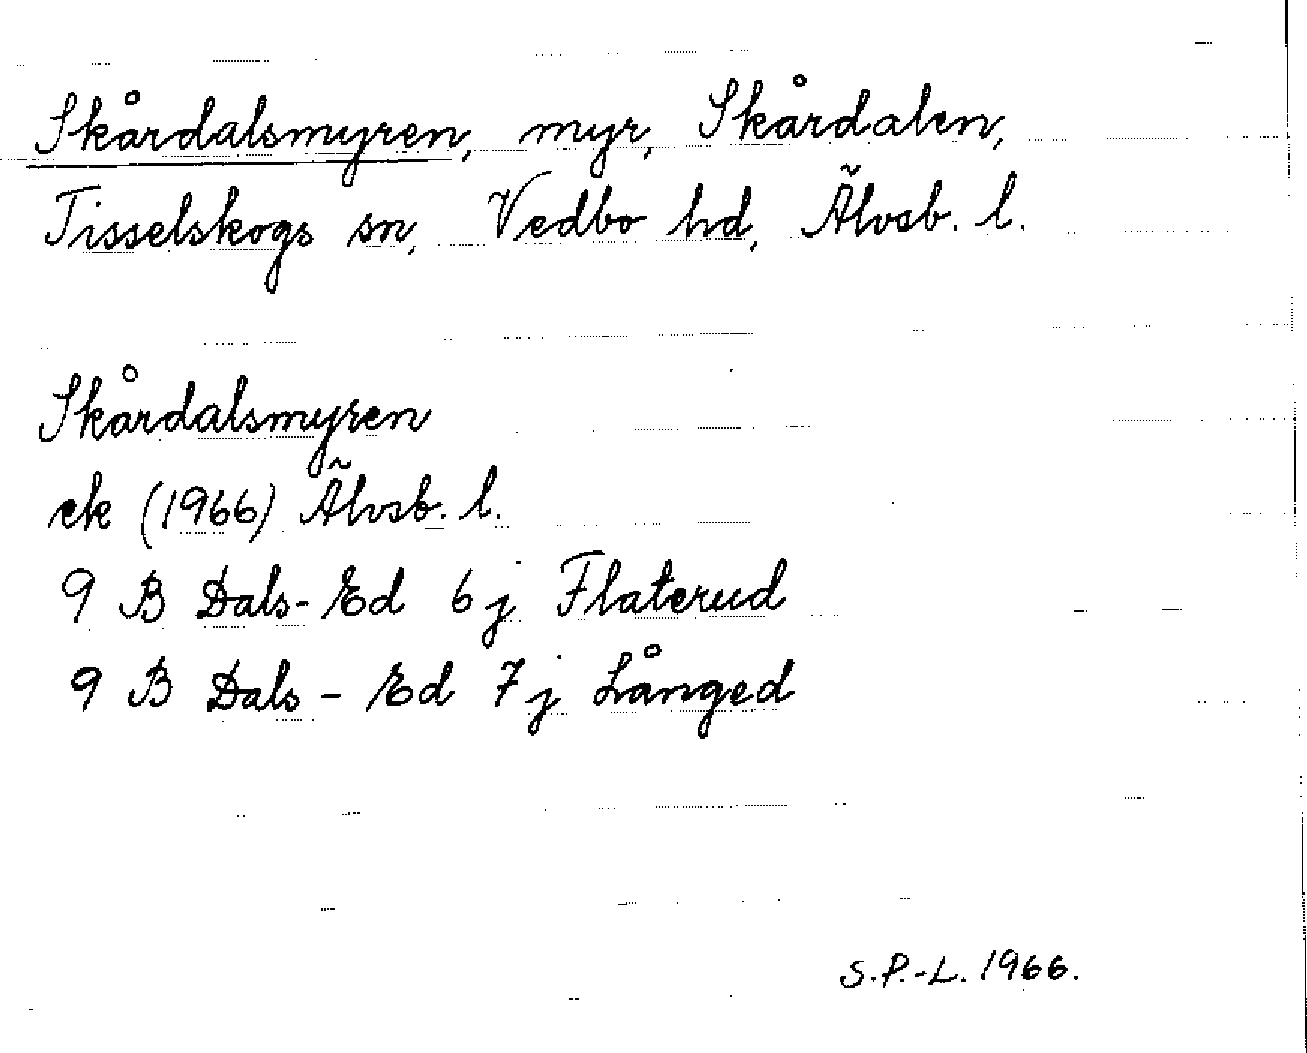 Skårdalsmyren, myr, Skårdalen,
Tisselskogs sn, Vedbo hd, Älvsb. l.
Skårdalsmyren
ek (1966) Älvsb. l.
9 B Dals-Ed 6 j Flaterud
9 B Dals - Ed 7 j Långed
S.P.-L. 1966.